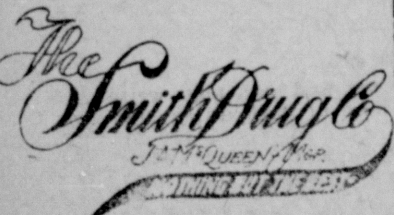 The
Smith Drug Co
J. A. McQueen, Mgr.
NOTHING BUT THE BEST